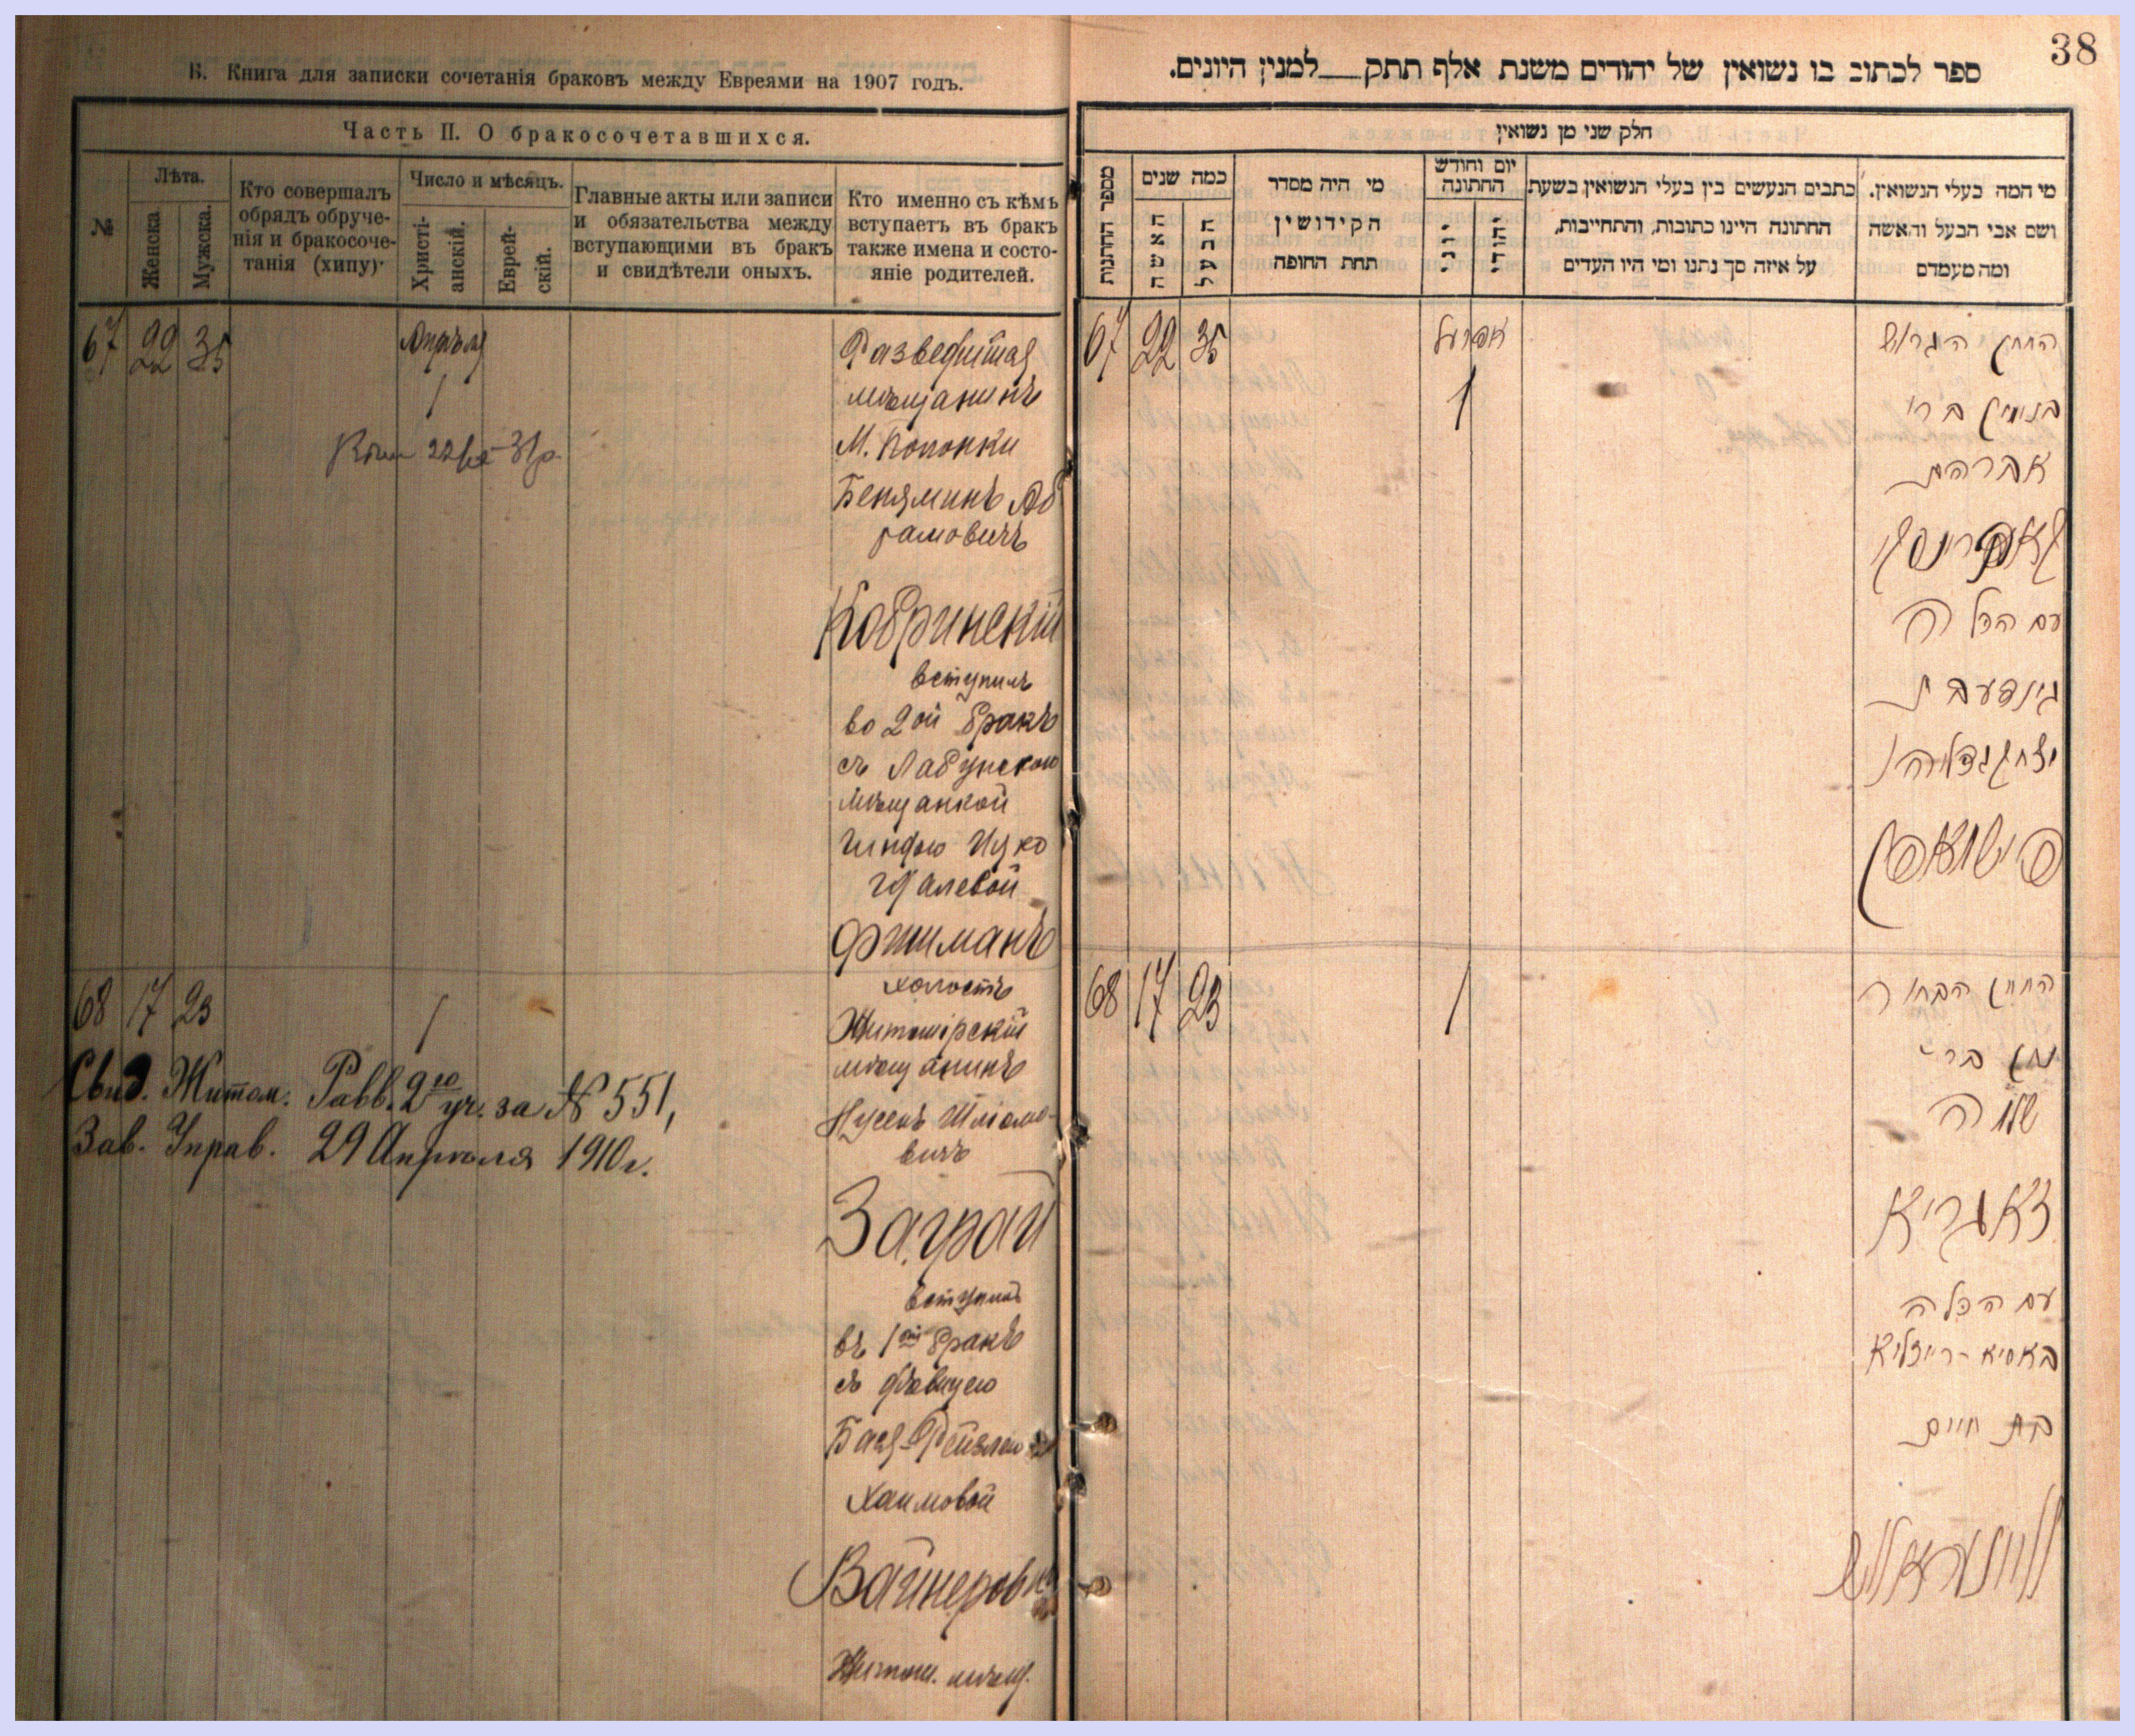 Б. Книга для записки сочетанія браковъ между Евреями на 1907 годъ.
Часть II. О бракосочетавшихся.
№
Лѣта.
Женска.
Мужска.
Кто совершалъ
обрядъ обруче-
нія и бракосоче-
танія (хипу)
Число и мѣсяцъ.
Христі-
анскій.
Еврей-
скій.
Главные акты или записи
и обязательства между
вступающими въ бракъ
и свидѣтели оныхъ.
Кто именно съ кѣмъ
вступаетъ въ бракъ
также имена и состо-
яніе родителей.
67 22 35 Апрѣля
1
мѣщанинъ
Беняминъ Аб
рамовичъ
Кобринскій
вступилъ
во 2ой бракъ
съ Лабунскою
мѣщанкой
Гиндою Ицко
Фишманъ
68 17 23 1
холостъ
Житомірскій
мѣщанинъ
Нусенъ Шліомо-
вичъ
Заграй
вступилъ
въ 1ый бракъ
съ дѣвицею
Бася-Рейзлею
Хаимовой
Вайнеровъ
Житом. мѣщ.
Свид. Житом. Равв. 2го уч. за № 551,
Зав. Управ. 29 Апрѣля 1910 г.
38
ספר לכתוב בו נשואין של יהודים משנת אלף תתק למנין היונים.
חלק שני מן נשואין
מספר החתנות
כמה שנים
האשה
הבעל
מי היה מסדר
הקידושין
תחת החופה
יום וחודש
החתונה
יוני
יהודי
כתבים הנעשים בין בעלי הנשואין בשעת
החתונה היינו כתובות, והתחייבות,
על איזה סך נתנו ומי היו העדים
מי המה בעלי הנשואין.
ושם אבי הבעל והאשה
ומה מעמדם
67 22 35 אפריל
1
החתן הגרוש
בנימין בר׳
אברהם
קאברינסקי
עם הכלה
גינדע בת
יצחק גדליהו
פישמאן
68 17 23 1
החתן הבחור
נתן בר׳
שלמה
זאגריא
עם הכלה
באסיא-רייזליא
בת חיים